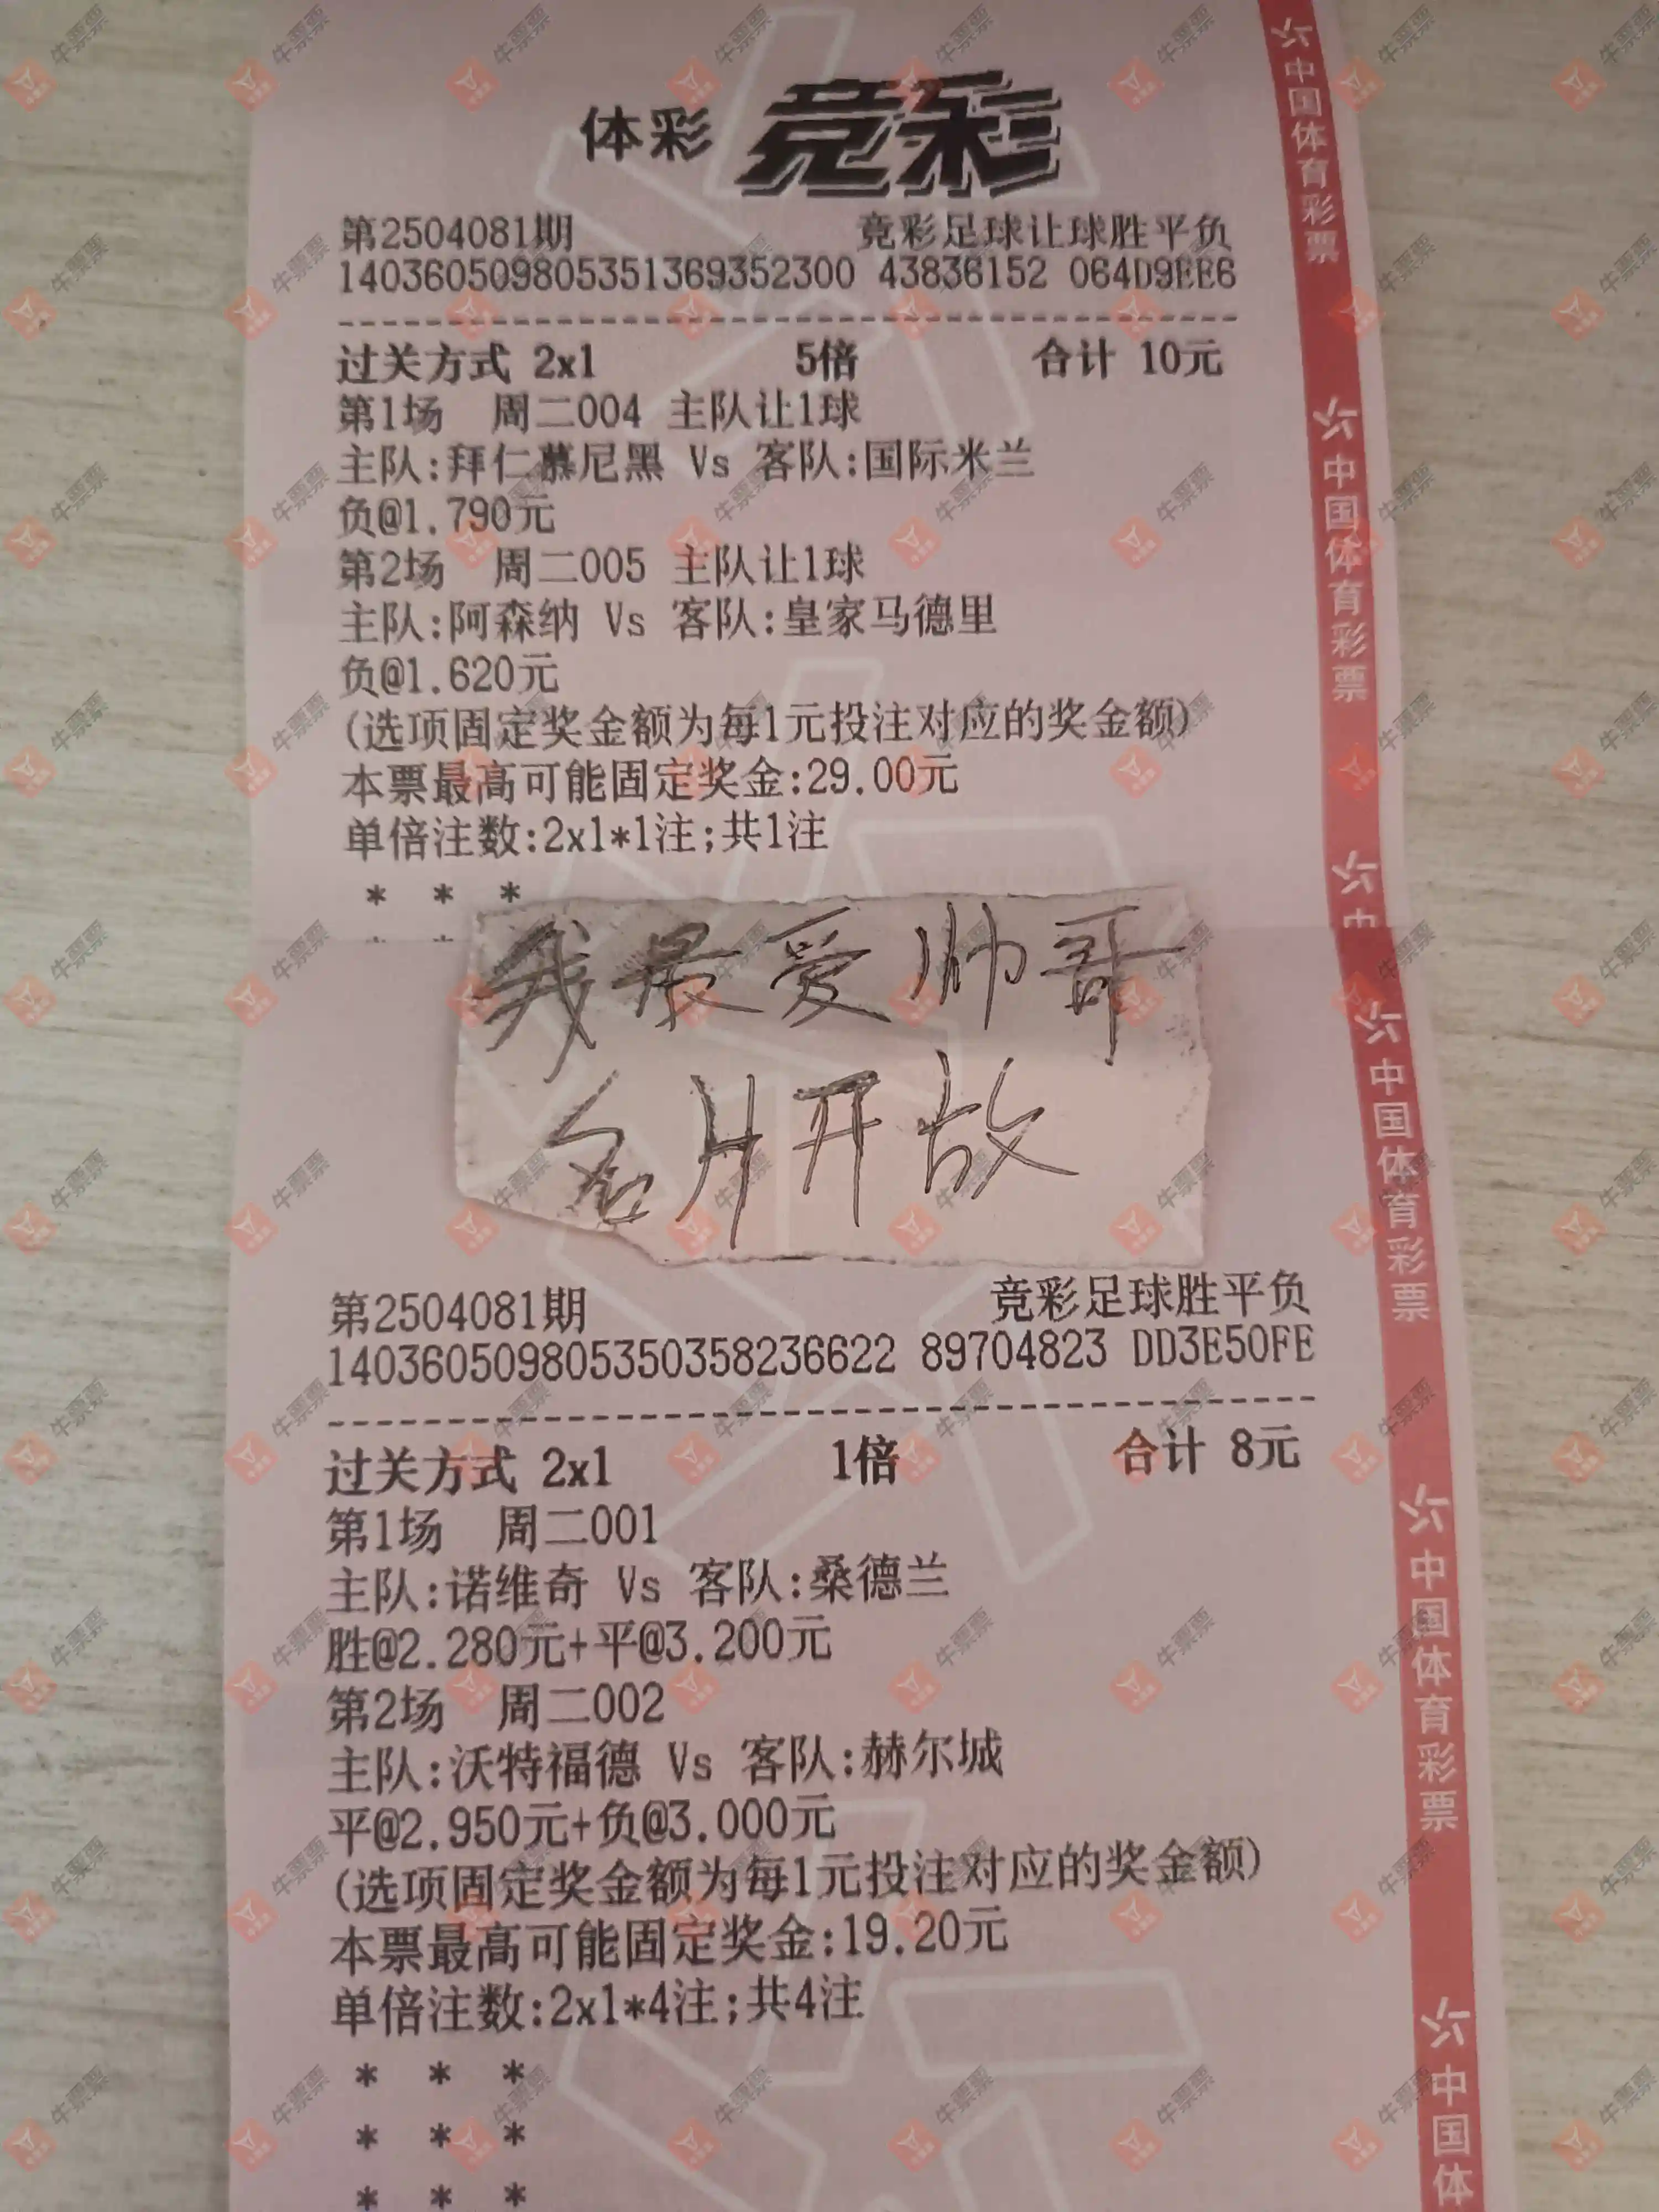 体彩 竞彩
第2504081期 竞彩足球让球胜平负
140360509805351369352300 43836152 064D9EE6
过关方式 2x1 5倍 合计 10元
第1场 周二004 主队让1球
主队:拜仁慕尼黑 Vs 客队:国际米兰
负@1.790元
第2场 周二005 主队让1球
主队:阿森纳 Vs 客队:皇家马德里
负@1.620元
(选项固定奖金额为每1元投注对应的奖金额)
本票最高可能固定奖金:29.00元
单倍注数:2x1*1注;共1注
* * *
我最爱帅哥
名片开放
第2504081期 竞彩足球胜平负
140360509805350358236622 89704823 DD3E50FE
过关方式 2x1 1倍 合计 8元
第1场 周二001
主队:诺维奇 Vs 客队:桑德兰
胜@2.280元+平@3.200元
第2场 周二002
主队:沃特福德 Vs 客队:赫尔城
平@2.950元+负@3.000元
(选项固定奖金额为每1元投注对应的奖金额)
本票最高可能固定奖金:19.20元
单倍注数:2x1*4注;共4注
* * *
* * *
* * *
中国体育彩票
中国体育彩票
中国体育彩票
中国体育彩票
中国体
牛票票